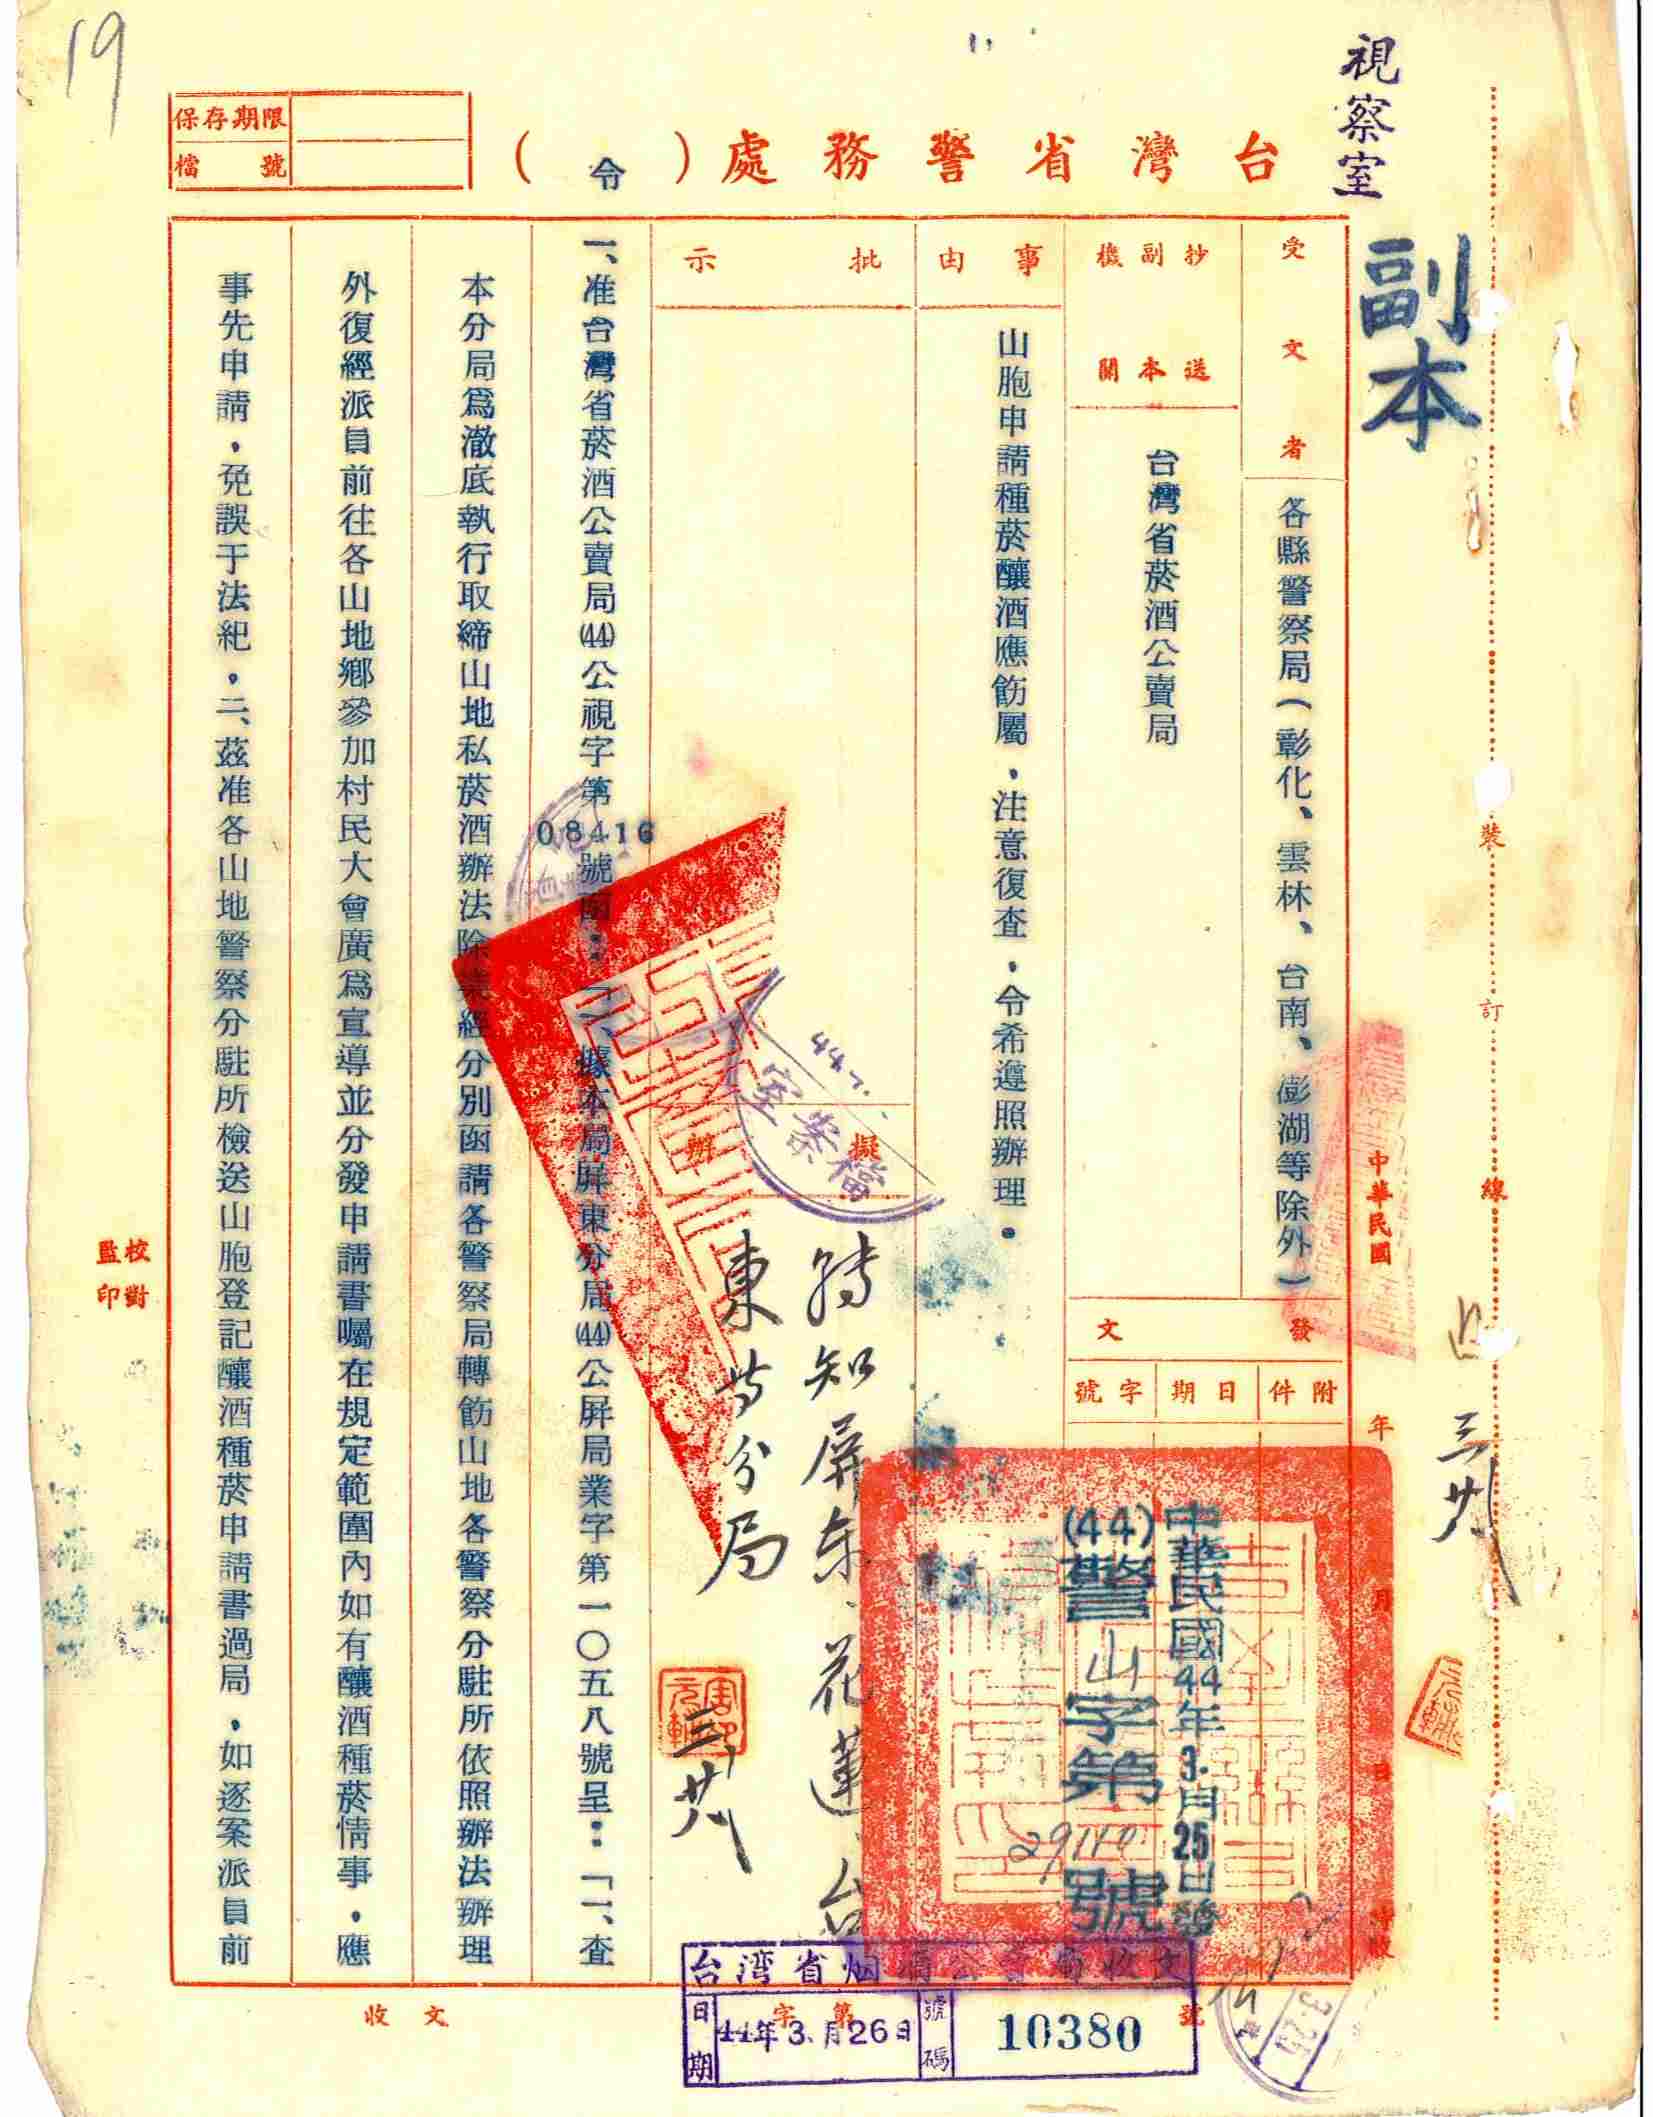 19
視察室
副本
保存期限
檔號
台灣省警務處（令）
受文者
各縣警察局（彰化、雲林、台南、澎湖等除外）
抄送副本機關
台灣省菸酒公賣局
事由
山胞申請種菸釀酒應飭屬，注意復查，令希遵照辦理。
批示
擬辦
轉知屏东、花蓮、台
東等分局
三、廿八
發文
附件
日期
字號
中華民國44年3.月25日發
(44)警山字第29110號
一、准台灣省菸酒公賣局(44)公視字第08416號函：「一、據本局屏東分局(44)公屏局業字第一〇五八號呈：「一、查
本分局爲澈底執行取締山地私菸酒辦法除業經分別函請各警察局轉飭山地各警察分駐所依照辦法辦理
外復經派員前往各山地鄉參加村民大會廣爲宣導並分發申請書囑在規定範圍內如有釀酒種菸情事，應
事先申請，免誤于法紀，二、茲准各山地警察分駐所檢送山胞登記釀酒種菸申請書過局，如逐案派員前
校對
監印
中華民國
年
月
日
裝
訂
線
三廿八
檔案室
收文
字第
號
台湾省烟酒公賣局收文
日期
44年3.月26日
號碼
10380